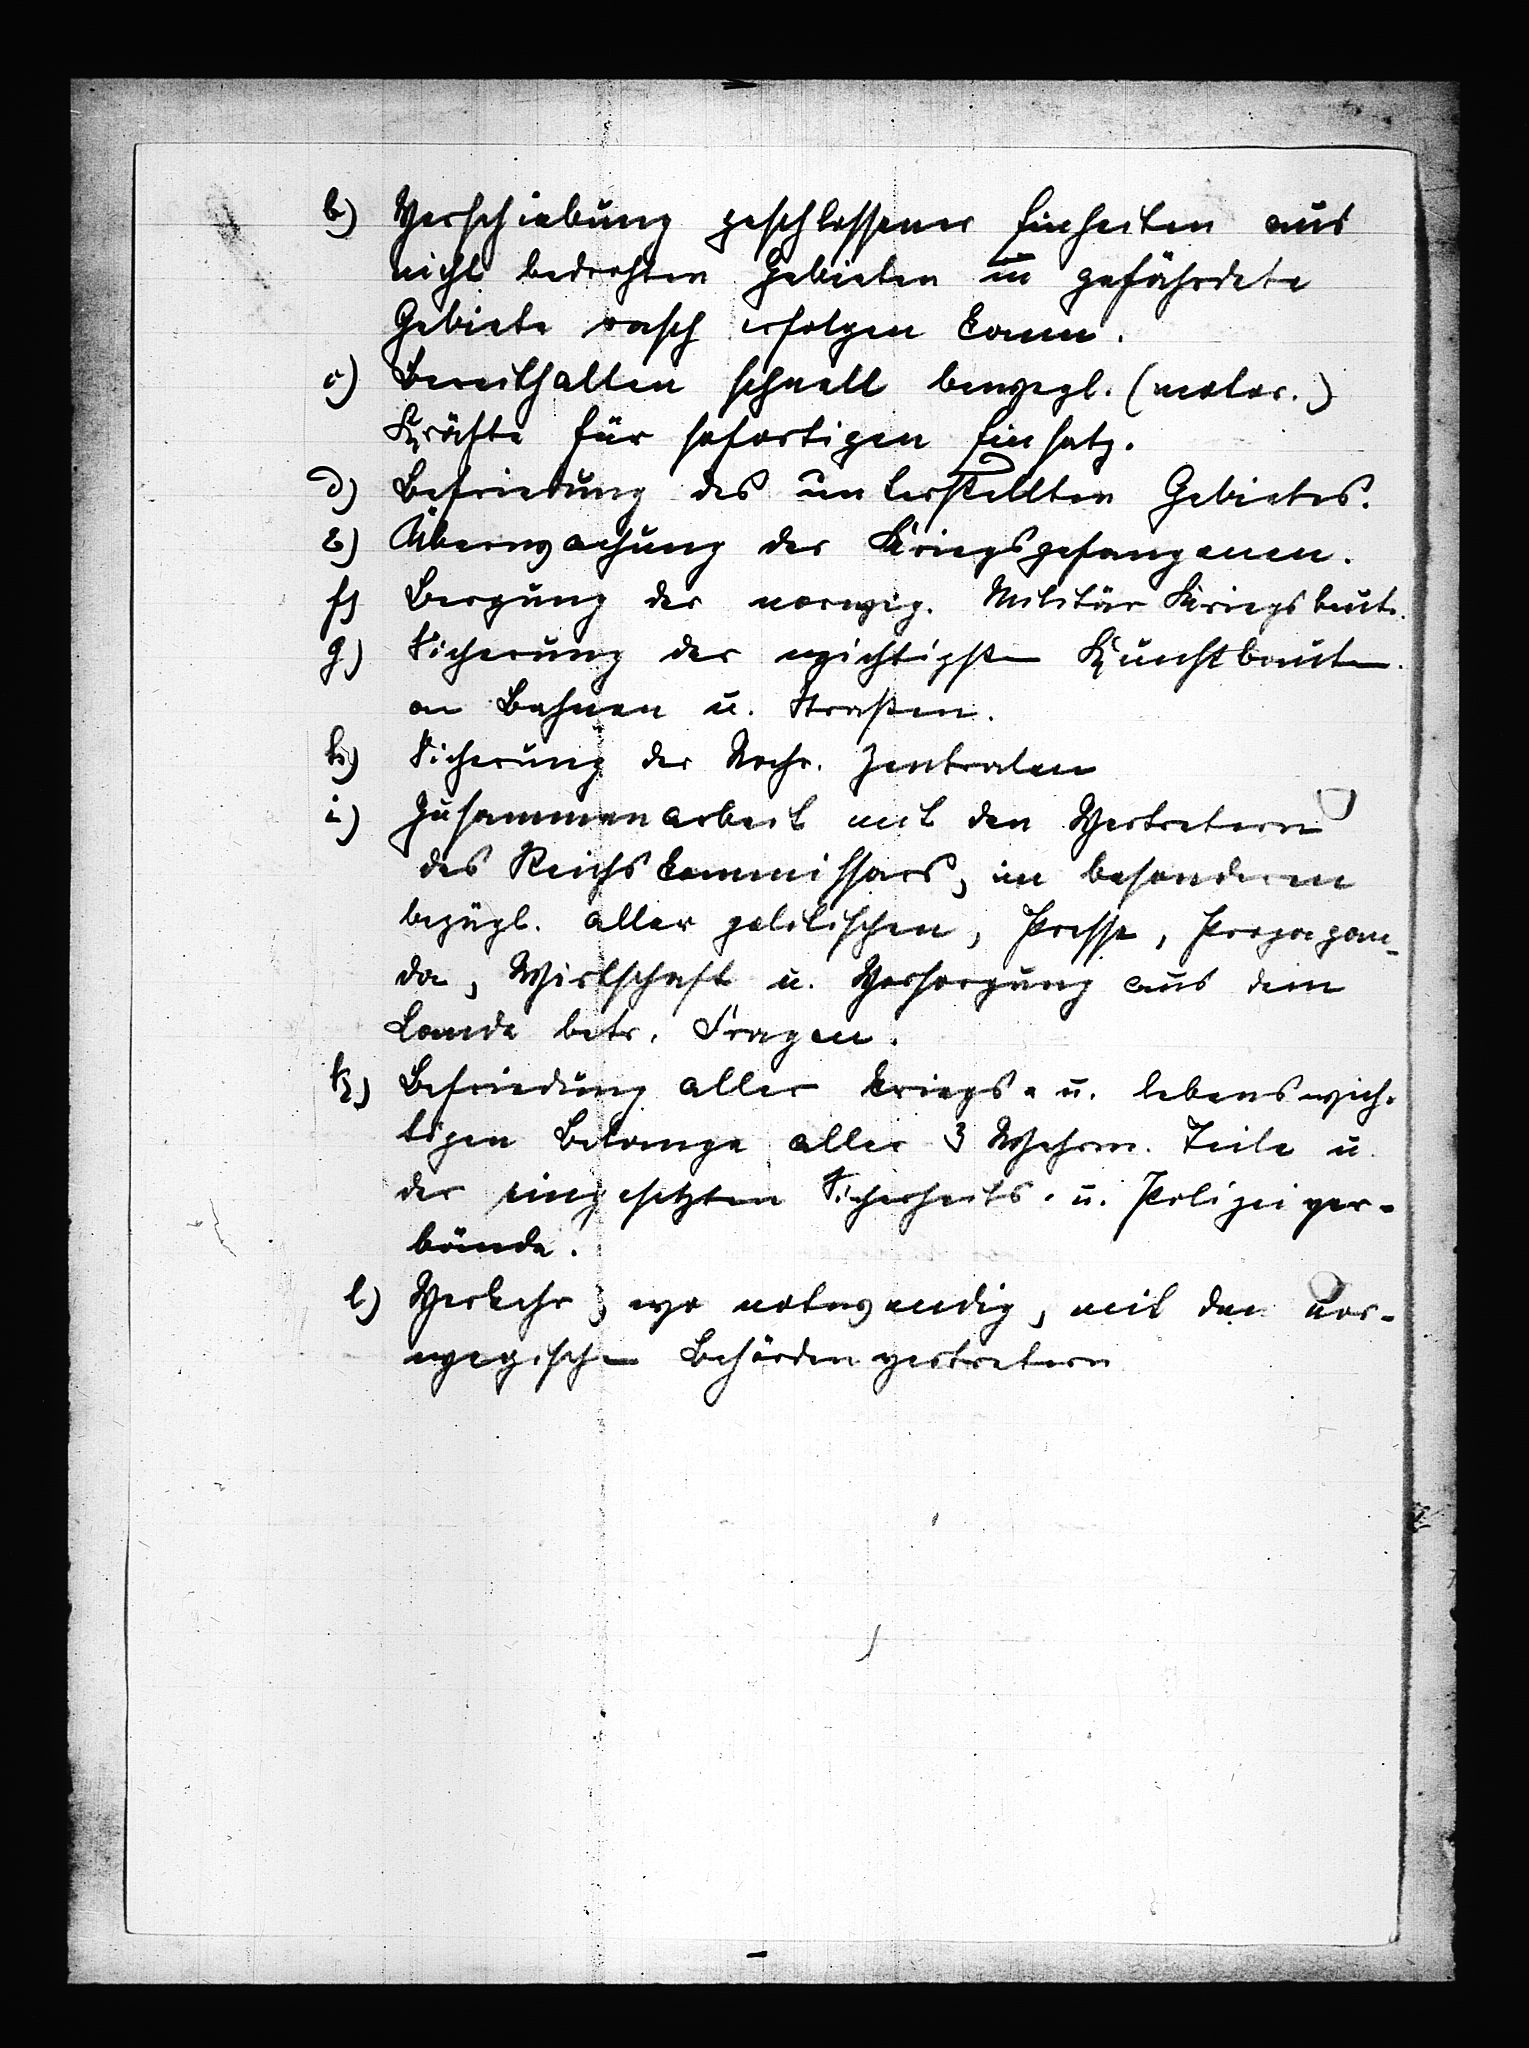 b) Verschiebung geschlossener Einheiten aus
nicht bedrohten Gebieten in gefährdete
Gebiete rasch erfolgen kann.
c) Bereithalten schnell bewegl. (motor.)
Kräfte für sofortigen Einsatz.
d) Befriedung des unterstellten Gebietes.
e) Überwachung der Kriegsgefangenen.
f) Bergung der norweg. Militär Kriegsbeute.
g) Sicherung der wichtigsten Kunstbauten
an Bahnen u. Straßen.
h) Sicherung der Nachr. Zentralen
i) Zusammenarbeit mit den Vertretern
des Reichskommissars, im besonderen
bezügl. aller politischen, Presse, Propagan-
da, Wirtschaft u. Versorgung aus dem
Lande betr. Fragen.
k) Befriedung aller kriegs- u. lebenswich-
tigen Belange aller 3 Wehrm. Teile u.
der eingesetzten Sicherheits- u. Polizeiver-
bände.
l) Verkehr, wo notwendig, mit den nor-
wegischen Behördenvertretern